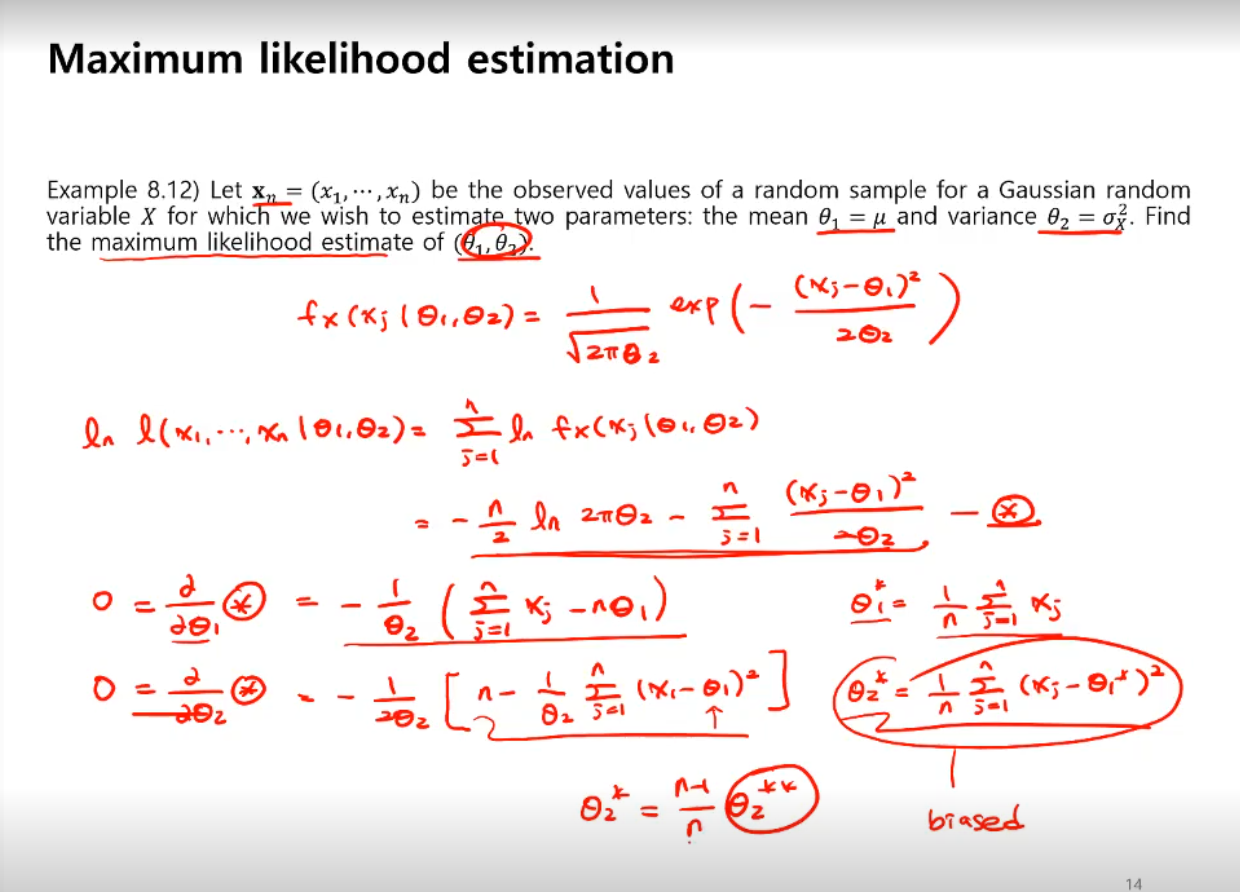 Maximum likelihood estimation
Example 8.12) Let 𝐱ₙ = (x₁, ⋯, xₙ) be the observed values of a random sample for a Gaussian random
variable X for which we wish to estimate two parameters: the mean θ₁ = μ and variance θ₂ = σ_X^2. Find
the maximum likelihood estimate of (θ₁, θ₂).
f_X(x_j | θ₁, θ₂) = 1/√(2πθ₂) exp(− (x_j − θ₁)²/2θ₂)
ln l(x₁, ⋯, xₙ | θ₁, θ₂) = Σ_{j=1}^{n} ln f_X(x_j | θ₁, θ₂)
= − n/2 ln 2πθ₂ − Σ_{j=1}^{n} (x_j − θ₁)²/2θ₂ — ⊛
0 = ∂/∂θ₁ ⊛ = − 1/θ₂ (Σ_{j=1}^{n} x_j − nθ₁) θ₁* = 1/n Σ_{j=1}^{n} x_j
0 = ∂/∂θ₂ ⊛ = − 1/2θ₂ [n − 1/θ₂ Σ_{j=1}^{n} (x₁ − θ₁)²] θ₂* = 1/n Σ_{j=1}^{n} (x_j − θ₁*)²
θ₂* = n−1/n θ₂** biased
14